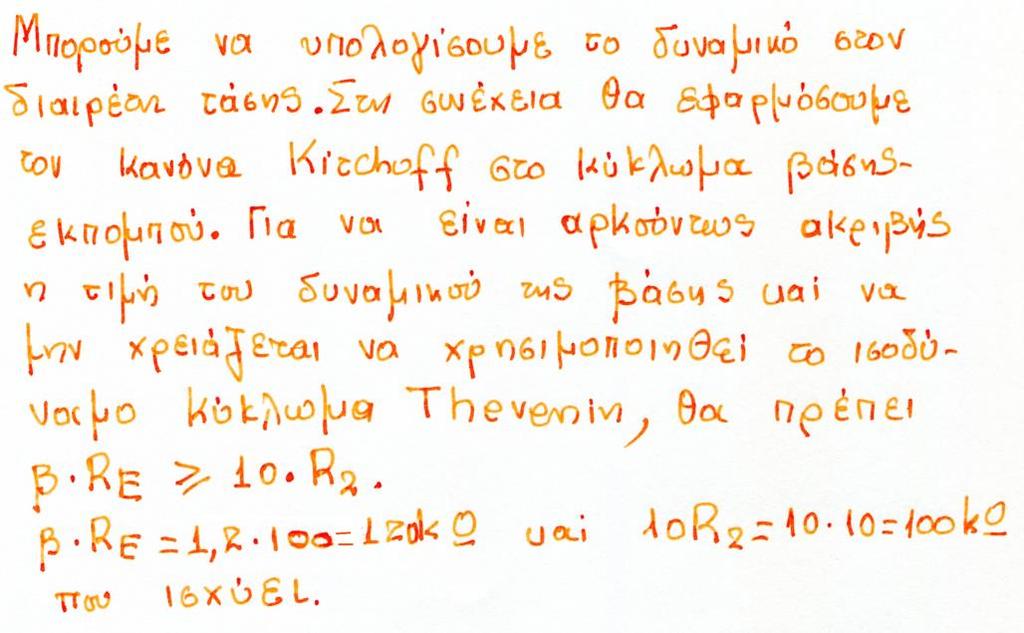 Μπορούμε να υπολογίσουμε το δυναμικό στον
διαιρέτη τάσης. Στη συνέχεια θα εφαρμόσουμε
τον κανόνα Kirchoff στο κύκλωμα βάσης-
εκπομπού. Για να είναι αρκούντως ακριβής
η τιμή του δυναμικού της βάσης και να
μην χρειάζεται να χρησιμοποιηθεί το ισοδύ-
ναμο κύκλωμα Thevenin, θα πρέπει
β·RE ≥ 10·R2.
β·RE = 1,2·100=120kΩ και 10R2=10·10=100kΩ
που ισχύει.